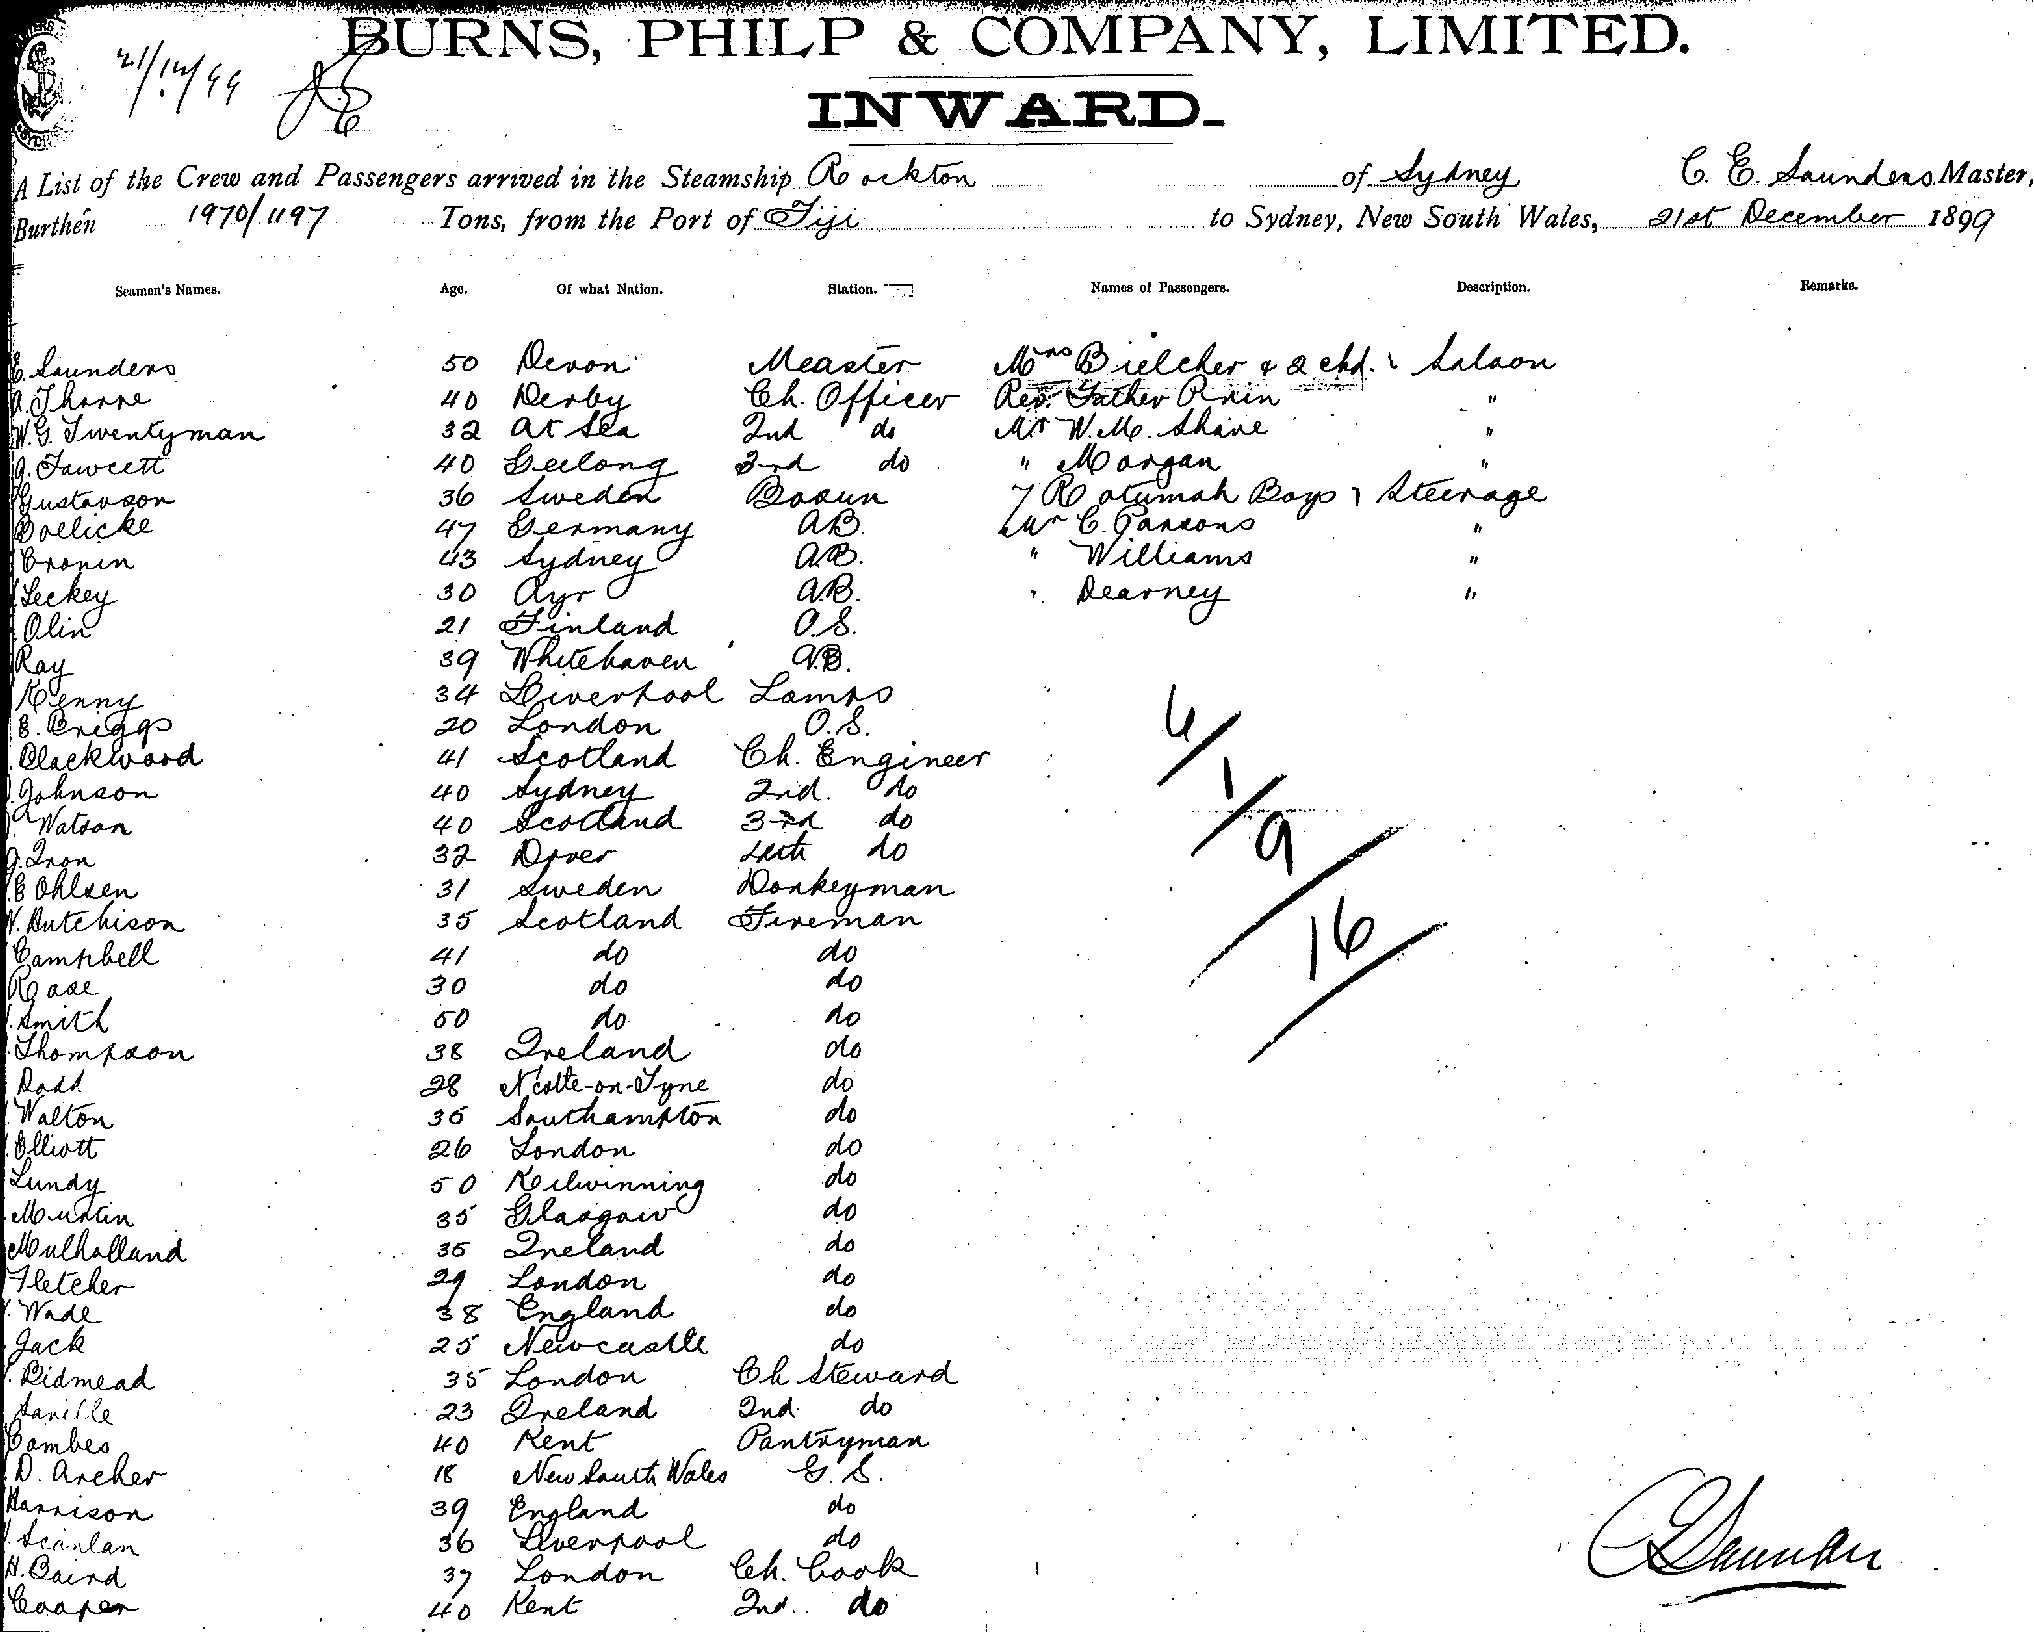 BURNS, PHILP & COMPANY, LIMITED.
21/12/99
INWARD.
A List of the Crew and Passengers arrived in the Steamship Rockton of Sydney C. E. Saunders Master,
Burthen 1970/1197 Tons, from the Port of Fiji to Sydney, New South Wales, 21st December 1899
Seamen's Names. Age. Of what Nation. Station. Names of Passengers. Description. Remarks.
E. Saunders 50 Devon Measter Mrs Bielcher & 2 chd. Saloon
A. Thorne 40 Derby Ch. Officer Rev. Father Roin "
W. G. Twentyman 32 At Sea 2nd do Mr W. M. Shine "
Fawcett 40 Geelong 3rd do " Morgan "
Gustavson 36 Sweden Bosun 7 Rotumah Boys Steerage
Boelicke 47 Germany AB. Mr C. Parsons "
Cronin 43 Sydney A.B. " Williams "
Leckey 30 Ayr A.B. " Dearney "
Olin 21 Finland O.S.
Ray 39 Whitehaven A.B.
Kenny 34 Liverpool Lamps
E. Briggs 20 London O.S.
Blackwood 41 Scotland Ch. Engineer
Johnson 40 Sydney 2nd. do
Watson 40 Scotland 3rd do
J. Iron 32 Dover 4th do
E Ohlsen 31 Sweden Donkeyman
Hutchison 35 Scotland Fireman
Campbell 41 do do
Rose 30 do do
Smith 50 do do
Thompson 38 Ireland do
Dodd 28 Ncstle-on-Tyne do
Walton 36 Southampton do
Elliott 26 London do
Lundy 50 Kilwinning do
Murtin 35 Glasgow do
Mulholland 36 Ireland do
Fletcher 29 London do
Wade 38 England do
Jack 25 Newcastle do
Bidmead 35 London Ch Steward
Saville 23 Ireland 2nd do
Combes 40 Kent Pantryman
D. Archer 18 New South Wales G. S.
Harrison 39 England do
Scanlan 36 Liverpool do
H. Baird 37 London Ch. Cook
Cooper 40 Kent 2nd.. do
6/1/9/16